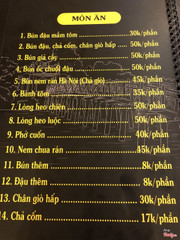 MÓN ĂN
1. Bún đậu mắm tôm 30k/phần
2. Bún đậu, chả cốm, chân giò hấp 50k/phần
3. Bún giả cầy 50k/phần
4. Bún ốc chuối đậu 50k/phần
5. Bún nem rán Hà Nội (Chả giò) 45k/phần
6. Bánh tôm 35k/phần
7. Lòng heo chiên 50k/phần
8. Lòng heo luộc 50k/phần
9. Phở cuốn 40k/phần
10. Nem chua rán 45k/phần
11. Bún thêm 8k/phần
12. Đậu thêm 8k/phần
13. Chân giò hấp 30k/phần
14. Chả cốm 17k/phần